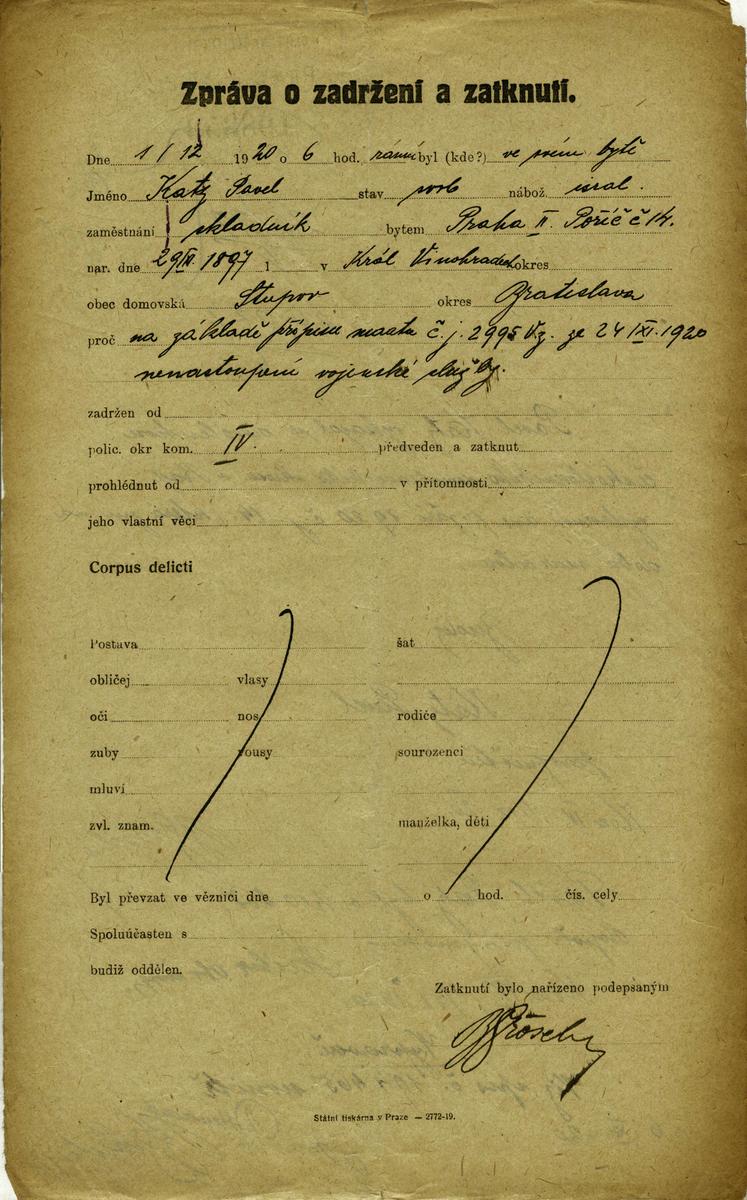 Zpráva o zadržení a zatknutí.
Dne 1 / 12 1920 o 6 hod. ranní byl (kde?) ve svém bytě
Jméno Katz Pavel stav svob nábož. isral.
zaměstnání skladník bytem Praha II. Poříč č 14.
nar. dne 1897 1 v Král Vinohradech okres
obec domovská Stupov okres Bratislava
proč na základě přípisu č. j. 2995 Vz. ze 24/XI. 1920
nenastoupení vojenské služby.
zadržen od
polic. okr kom. IV předveden a zatknut
prohlédnut od v přítomnosti
jeho vlastní věci
Corpus delicti
Postava šat
obličej vlasy
oči nos rodiče
zuby vousy sourozenci
mluví
zvl. znam. manželka, děti
Byl převzat ve věznici dne o hod. čís. cely
Spoluúčasten s
budiž oddělen.
Zatknutí bylo nařízeno podepsaným
Státní tiskárna v Praze — 2772-19.